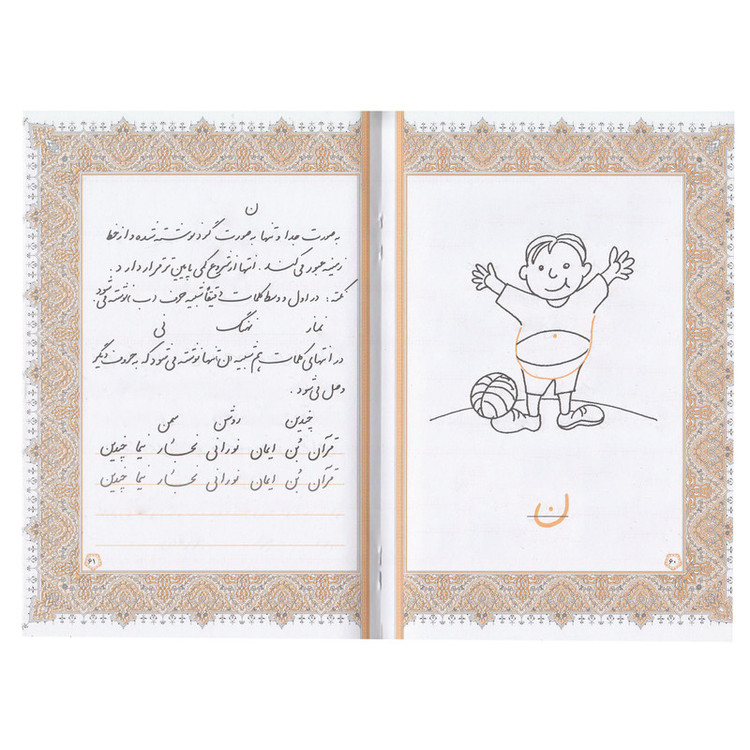 ن
۶۰
ن
به صورت جدا و تنها به صورت گرد نوشته شده و از خط
زمینه عبور می‌کند . انتها از شروع کمی پایین تر قرار دارد .
نکته : در اول و وسط کلمات دقیقاً شبیه حرف ب نوشته می‌شود .
نماز نهنگ نی
در انتهای کلمات هم شبیه ن تنها نوشته می‌شود که به حروف دیگر
وصل می‌شود .
چندین روشن سمن
قرآن بُن ایمان نورانی نجّار نیما چندین
قرآن بُن ایمان نورانی نجّار نیما چندین
۶۱